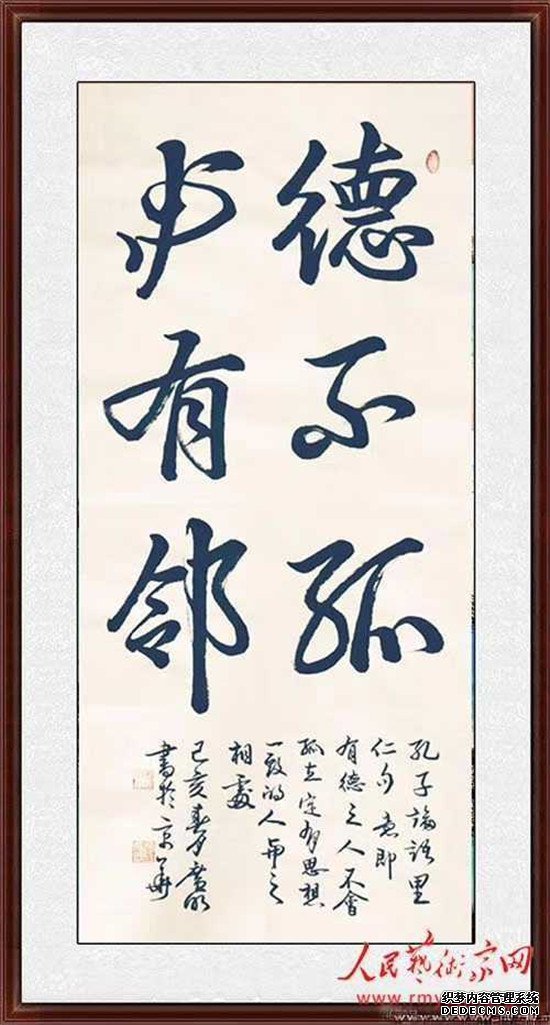 德不孤
必有邻
孔子論語里
仁句 意即
有德之人不會
孤立定有思想
一致的人与之
相處
己亥春月
書於京華
人民藝術家网
www.rmy
织梦内容管理系统
DEDECMS.COM